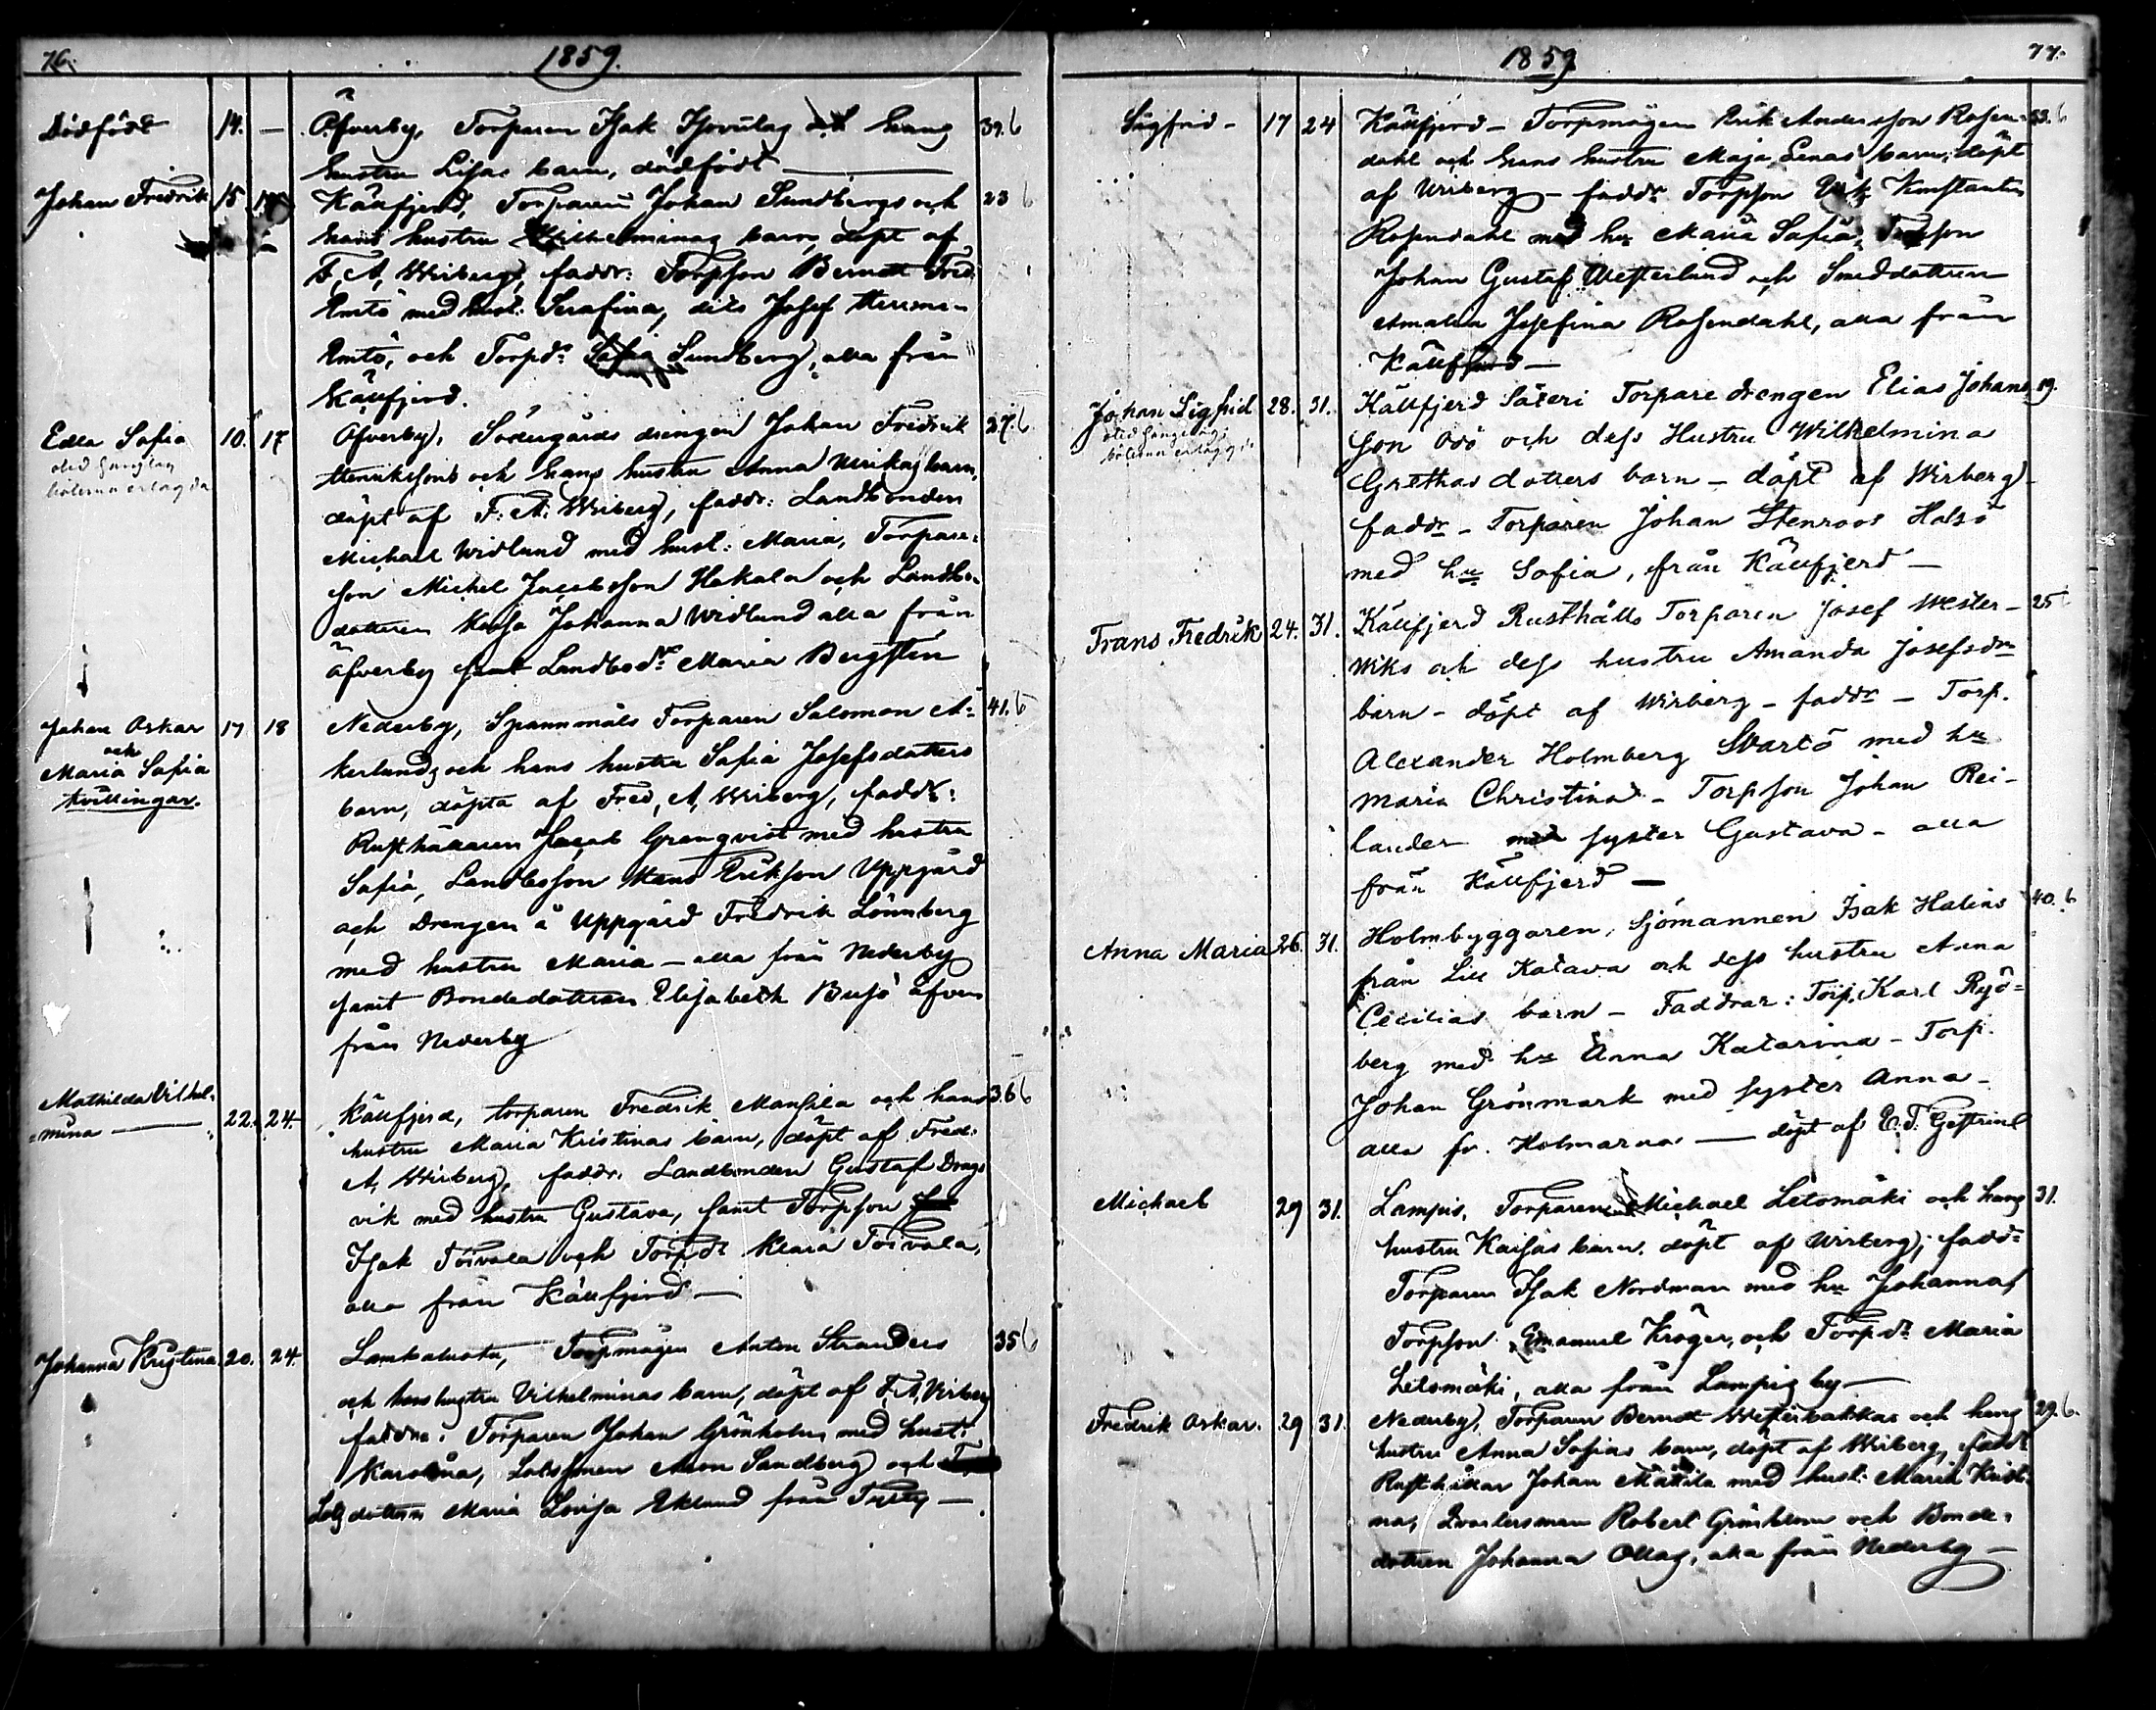 76.
1859.
Dödfödt 14. — Öfverby, Torparen Isak och hans 39. 6
hustru Lisas barn, dödfödt —
Johan Fredrik 15 Källfjerd, Torparen Johan Sundbergs och 23 6
hans hustru Wilhelminas barn, döpt af
F. A. Wirberg, faddr: Torpson Berndt Fred.
Emtö med hust. Serafina, dito Josef
Emtö, och Torpdr Sofia Sundberg, alla från
Källfjerd.
Edla Sofia 10. 17 Öfverby, Södergårds drengen Johan Fredrik 27. 6
oled gånglag
böterna erlagda
Henrikssons och hans hustru Anna Ulrikas barn,
döpt af F. A. Wirberg, faddr: Landbonden
Michael Widlund med hust: Maria, Torpare-
son Michel Jacobsson Hakala och Landbo-
dottren Johanna Widlund alla från
Öfverby samt Landbodr Maria Bergsten
Johan Oskar 17 18 Nederby, Spannmåls Torparen Salomon Å- 41. 6
och
Maria Sofia
tvillingar.
kerlunds och hans hustru Sofia Josefsdotters
barn, döpta af Fred. A. Wirberg, faddr:
Rusthållaren Jacob Granqvist med hustru
Sofia, Landbosson Mans Erikson Uppgård
och Drengen å Uppgård Fredrik Lönnberg
med hustru Maria — alla från Nederby
samt Bondedottren Elisabeth Busö äfven
från Nederby
Mathilda Vilhel-
mina — 22. 24. Källfjerd, torparen Fredrik Mansila och hans 36 6
hustru Maria Kristinas barn, döpt af Fred.
A. Wirberg, faddr. Landbonden Gustaf Drags
vik med hustru Gustava, samt Torpson
Isak Toivola och Torpdr Klara Toivola,
alla från Källfjerd —
Johanna Kristina 20. 24. Torpmågen Anton Stranders 35 6
och hans hustru Vilhelminas barn, döpt af F. A. Wirberg
faddra: Torparen Johan Grönholm med hust:
Karolina, Lotssonen Aron Sandberg och
Lotsdottren Maria Lovisa Eklund från —

1859
77.
Sigfrid — 17 24 Källfjerd — Torpmågen Erik Andersson Rosen- 53. 6
dahl och hans hustru Maja Lenas barn, döpt
af Wirberg — faddr Torpson Konstantin
Rosendahl med hu Maria Sofia, Torpson
Johan Gustaf Westerlund och Smeddottren
Amalia Josefina Rosendahl, alla från
Källfjerd —
Johan Sigfrid 28. 31. Källfjerd Säteri Torpare drengen Elias Johans- 19.
oled gånglag
böterna erlagda
son Odö och dess Hustru Wilhelmina
Grethas dotters barn — döpt af Wirberg
faddr — Torparen Johan Stenroos Halsö
med hu Sofia, från Källfjerd —
Frans Fredrik 24. 31. Källfjerd Rusthålls Torparen Josef Wester- 25
wiks och dess hustru Amanda Josefsdr
barn — döpt af Wirberg — faddr — Torp.
Alexander Holmberg Svartö med hu
Maria Christina — Torpson Johan Rei-
lander med syster Gustava — alla
från Källfjerd —
Anna Maria 26. 31. Holmbyggaren, Sjömannen Isak Halins 40. 6
från Lill Katava och dess hustru Anna
Cecilias barn — Faddrar: Torp. Karl Ryö-
berg med hu Anna Katarina — Torp.
Johan Grönmark med syster Anna —
alla fr. Holmarna — döpt af E. T. Gestrin
Michael 29 31. Lampis, Torparen Michael Letsmäki och hans 31.
hustru Kaisas barn, döpt af Wirberg; faddr
Torparen Isak Nordman med hu Johanna,
Torpson Emanuel Kröger, och Torpdr Maria
Letsmäki, alla från Lampis by —
Fredrik Oskar. 29 31. Nederby, Torparen Berndt Westerbackas och hans 29. 6.
hustru Anna Sofias barn, döpt af Wirberg, faddr
Rusthållar Johan Mattila med hust: Maria Kristi
na, Qvartersman Robert Grönblom och Bonde-
dottren Johanna Ollas, alla från Nederby —